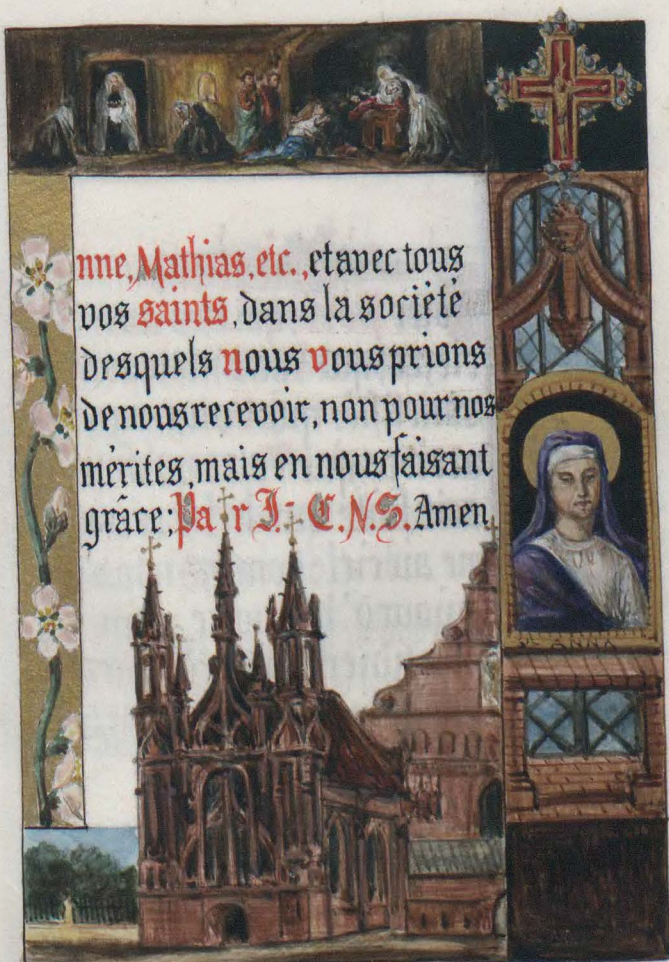 nne, Mathias, etc., et avec tous
vos saints, dans la société
desquels nous vous prions
de nous recevoir, non pour nos
mérites, mais en nous faisant
grâce; Par J.-C. N. S. Amen
S. ANNA